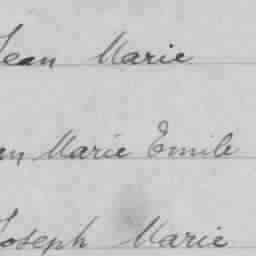 Jean Marie
Marie Emile
Joseph Marie